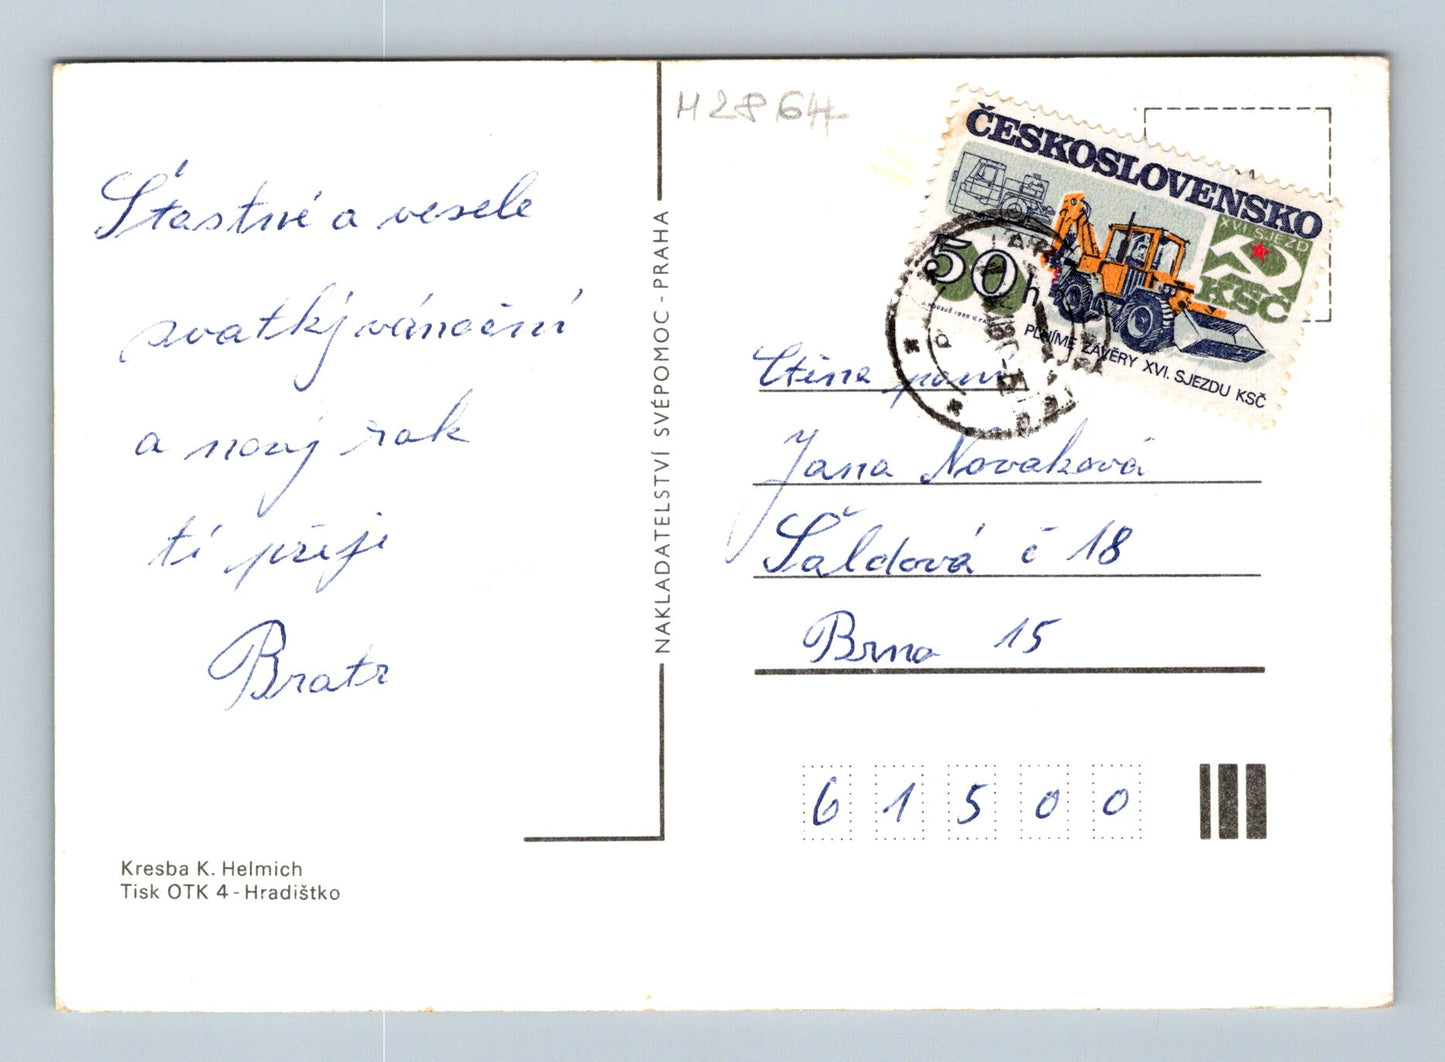 Šťastné a vesele
svatky vánoční
a nový rok
ti přeje
Bratr
Kresba K. Helmich
Tisk OTK 4 - Hradištko
NAKLADATELSTVÍ SVÉPOMOC - PRAHA
M 28 64
ČESKOSLOVENSKO
XVI. SJEZD
KSČ
50 h
PLNÍME ZÁVĚRY XVI. SJEZDU KSČ
Ctěna paní
Jana Novaková
Šaldová č 18
Brno 15
6 1 5 0 0